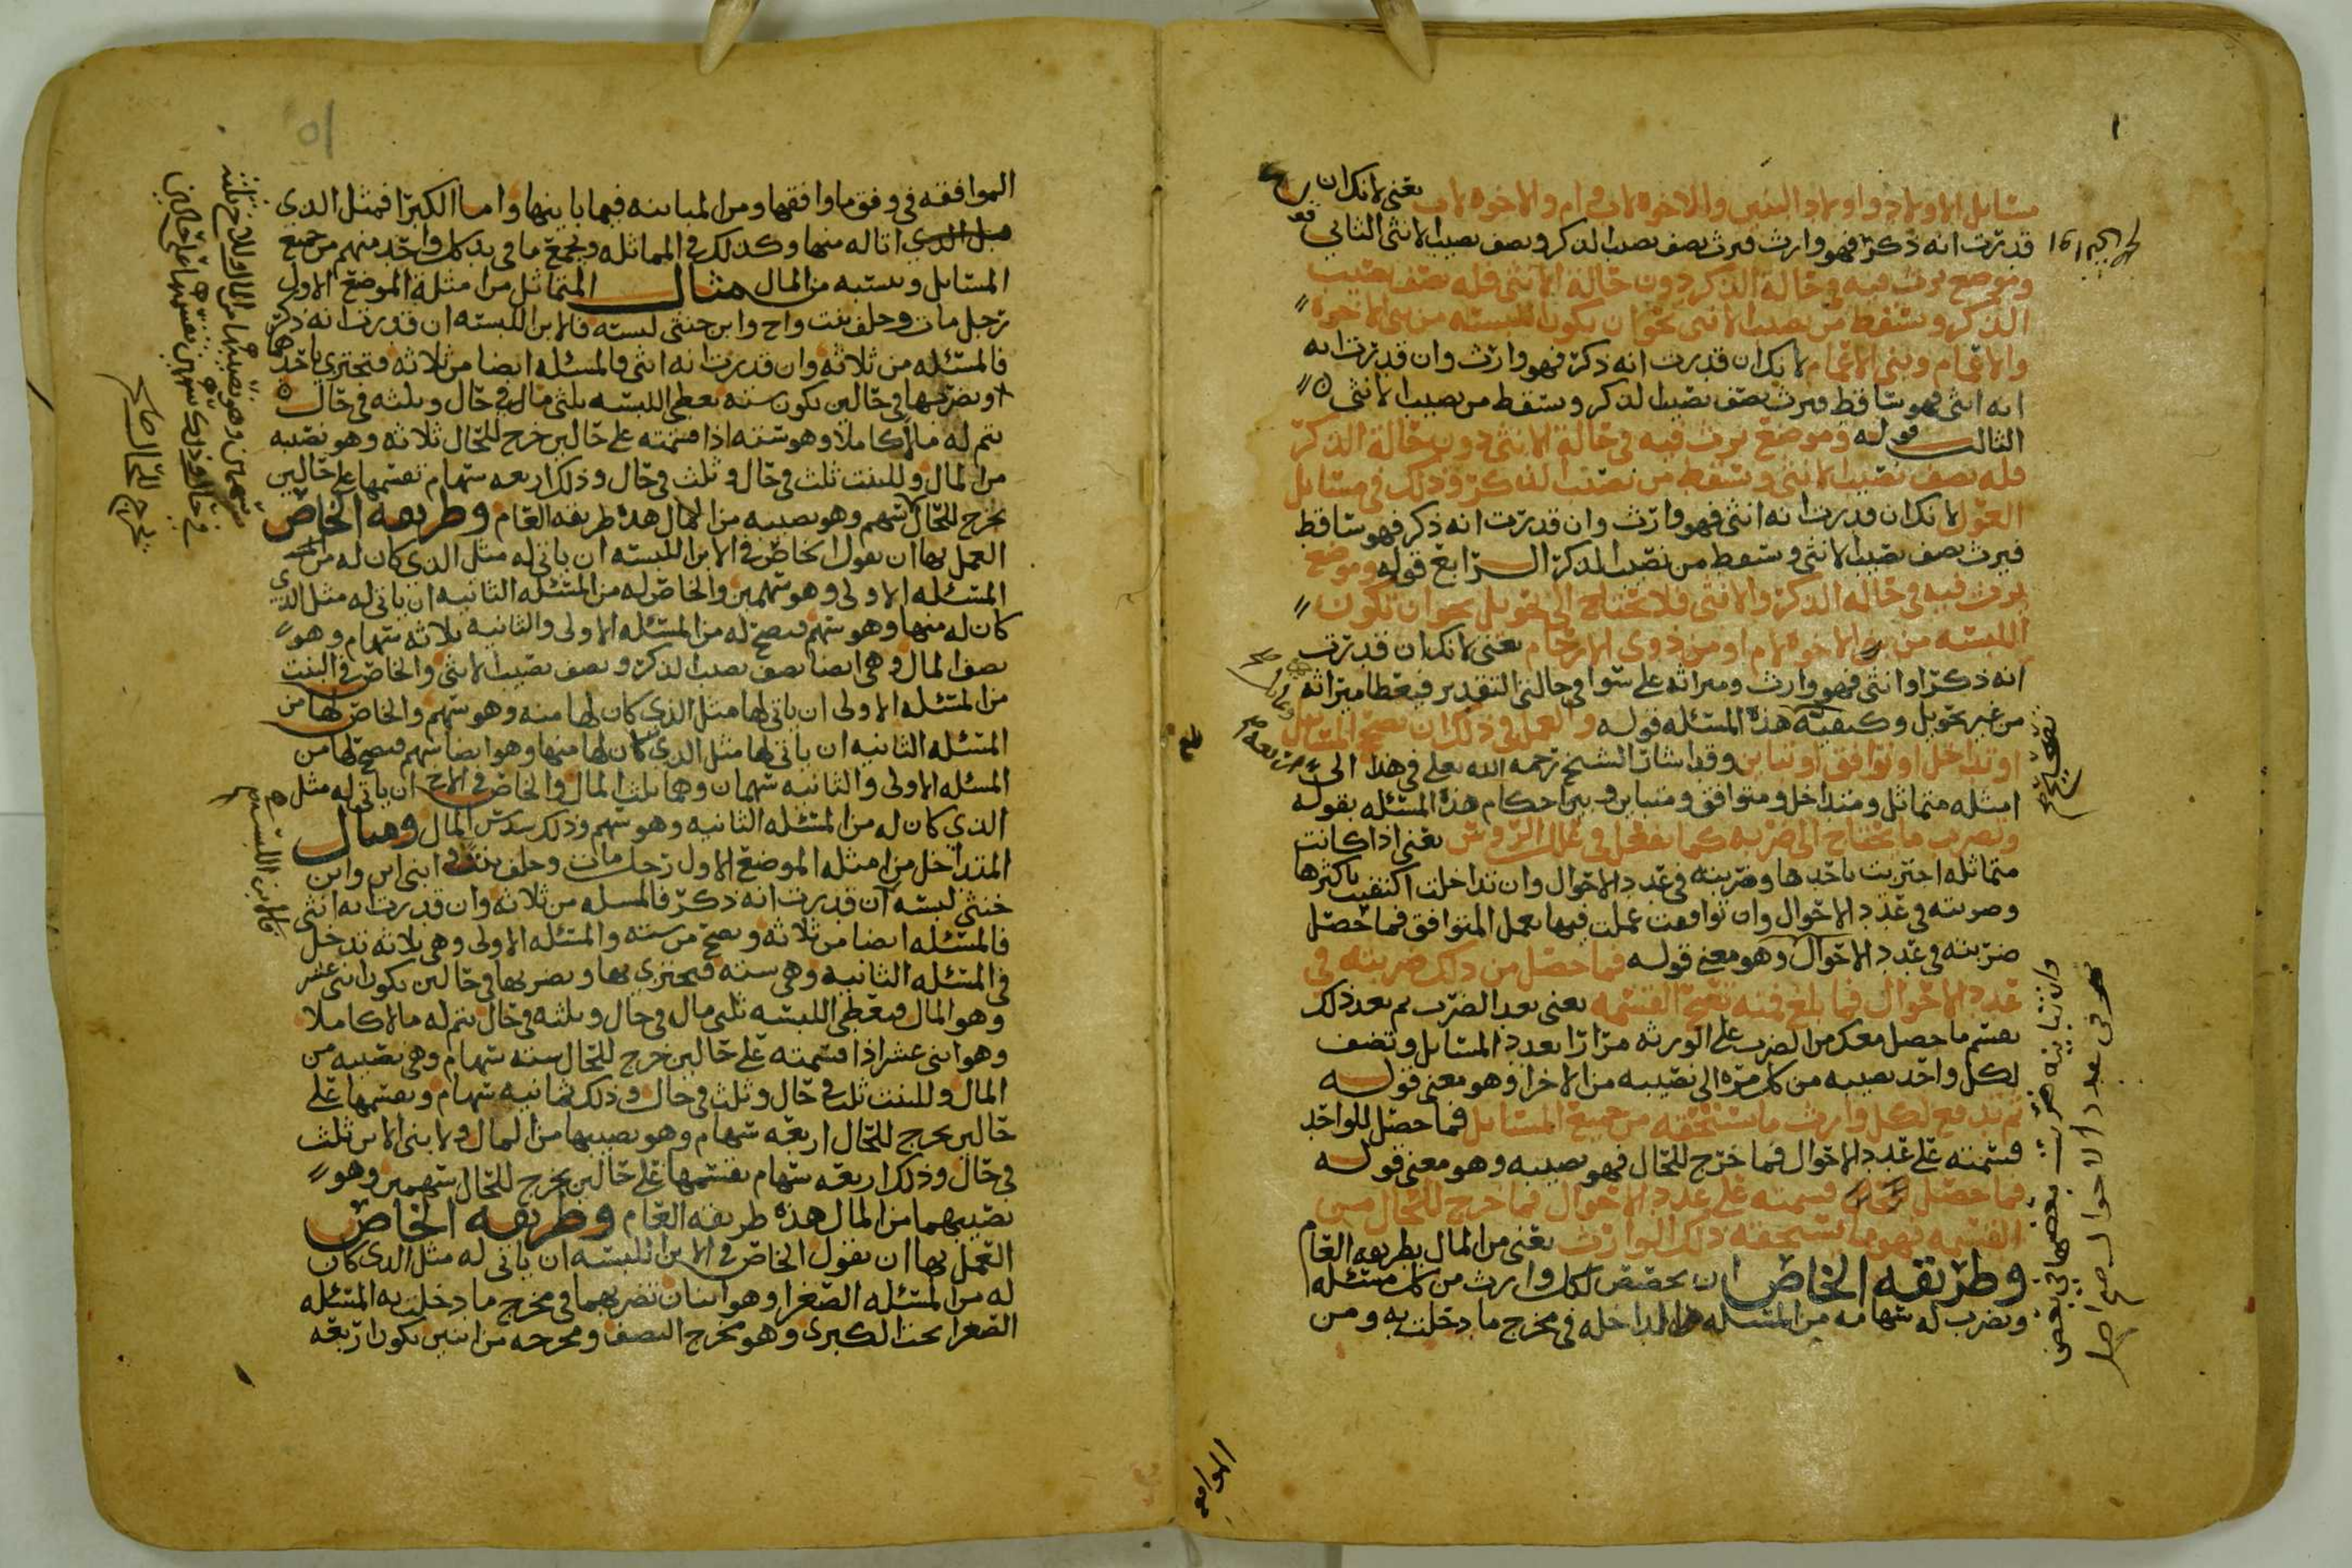 مسايل الاولاد واولاد البنين والاخوه لاب وام والاخوه لاب يعني لانك ان
قدرت انه ذكر فهو وارث فيرث نصف نصيب الذكر ونصف نصيب الانثى الثاني قو
وموضع يرث فيه في حالة الذكر دون حالة الانثى فله نصف نصيب
الذكر ويسقط من نصيب الانثى نحو ان يكون اللبسه من بني الاخوه
والاعمام وبني الاعمام لانك ان قدرت انه ذكر فهو وارث وان قدرت انه
انه انثى فهو ساقط فيرث نصف نصيب الذكر ويسقط من نصيب الانثى
الثالث قوله وموضع يرث فيه في حالة الانثى دون حالة الذكر
فله نصف نصيب الانثى ويسقط من نصيب الذكر وذلك في مسايل
العول لانك ان قدرت انه انثى فهو وارث وان قدرت انه ذكر فهو ساقط
فيرث نصف نصيب الانثى ويسقط من نصيب الذكر الرابع قوله وموضع
يرث فيه في حاله الذكر والانثى فلا يحتاج الى تحويل نحو ان تكون
اللبسه من الاخوه لام او من ذوي الارحام يعني لانك ان قدرت
انه ذكر او انثى فهو وارث وميراثه على سوا في حالتي التقدير فيعطا ميراثه
من غير تحويل وكيفية هذه المسئله قوله والعمل في ذلك ان تصح المسايل
او تتداخل او توافق او تباين وقد اشار الشيخ رحمه الله تعلى في هذا الى
امثله متماثل ومتداخل ومتوافق ومتباين وبين احكام هذه المسئله بقوله
وتضرب ما يحتاج الى ضربه كما تفعل في تلك الروس يعني اذا كانت
متماثله اجتزيت باحدها وضربته في عدد الاحوال وان تداخلت اكتفيت باكثرها
وضربته في عدد الاحوال وان توافقت عملت فيها بعمل المتوافق فما حصل
ضربته في عدد الاحوال وهو معنى قوله فما حصل من ذلك ضربته في
عدد الاحوال فما بلغ فمنه تصح القسمه يعني بعد الضرب ثم بعد ذلك
تقسم ما حصل معك من الضرب على الورثه مرارا بعدد المسايل وتضف
لكل واحد نصيبه من كل مره الى نصيبه من الاخرا وهو معنى قوله
ثم تدفع لكل وارث ما يستحقه من جميع المسايل فما حصل للواحد
قسمته على عدد الاحوال فما خرج للحال فهو نصيبه وهو معنى قوله
فما حصل قسمته على عدد الاحوال فما خرج للحال من
القسمه فهو ما يستحقه ذلك الوارث يعني من المال بطريقه العام
وطريقه الخاص ان تحفظ لكل وارث من كل مسئله
وتضرب له سهامه من المسئله الداخله في مخرج ما دخلت به ومن
وان تباينه ضربت بعضها في بعض
ثم في عدد الاحوال صح اصل
الموافقه في وفق ما وافقها ومن المباينه فيما باينها واما الكبرا فمثل الذي
اتا له منها وكذلك في المماثله وتجمع ما في يد كل واحد منهم من جميع
المسايل وتنسبه من المال مثال المتماثل من امثلة الموضع الاول
رجل مات وخلف بنت واخ وابن خنثى لبسه فالابن اللبسه ان قدرت انه ذكر
فالمسئله من ثلاثه وان قدرت انه انثى فالمسئله ايضا من ثلاثه فتجتزي باحدها
وتضربها في حالين يكون سته يعطى اللبسه ثلثي مال في حال وثلثه في حال
يتم له مالا كاملا وهو سته اذا قسمته على حالين خرج للحال ثلاثه وهو نصيبه
من المال وللبنت ثلث في حال وثلث في حال وذلك اربعه سهام تقسمها على حالين
يخرج للحال سهم وهو نصيبه من المال هذه طريقه العام وطريقه الخاص
العمل بها ان تقول الخاص في الابن اللبسه ان ياتي له مثل الذي كان له من
المسئله الاولى وهو سهمين والخاص له من المسئله الثانيه ان ياتي له مثل الذي
كان له منها وهو سهم فيصح له من المسئله الاولى والثانيه ثلاثه سهام وهو
نصف المال وهي ايضا نصف نصيب الذكر ونصف نصيب الانثى والخاص في البنت
من المسئله الاولى ان ياتي لها مثل الذي كان لها منه وهو سهم والخاص لها من
المسئله الثانيه ان ياتي لها مثل الذي كان لها منها وهو ايضا سهم فيصح لها من
المسئله الاولى والثانيه سهمان وهما ثلث المال والخاص في الاخ ان ياتي له مثل
الذي كان له من المسئله الثانيه وهو سهم وذلك سدس المال ومثال
المتداخل من امثله الموضع الاول رجل مات وخلف بنت ابني ابن وابن
خنثى لبسه ان قدرت انه ذكر فالمسله من ثلاثه وان قدرت انه انثى
فالمسئله ايضا من ثلاثه وتصح من سته والمسئله الاولى وهي ثلاثه تدخل
في المسئله الثانيه وهي سته فتجتزي بها وتضربها في حالين يكون اثنى عشر
وهو المال فيعطى اللبسه ثلثي مال في حال وثلثه في حال يتم له مالا كاملا
وهو اثنى عشر اذا قسمته على حالين خرج للحال سته سهام وهي نصيبه من
المال وللبنت ثلث في حال وثلث في حال وذلك ثمانيه سهام وتقسمها على
حالين يخرج للحال اربعه سهام وهو نصيبها من المال ولابني الابن ثلث
في حال وذلك اربعه سهام تقسمها على حالين يخرج للحال سهمين وهو
نصيبهما من المال هذه طريقه العام وطريقه الخاص
العمل بها ان تقول الخاص في الابن اللبسه ان ياتي له مثل الذي كان
له من المسئله الصغرا وهو اثنان تضربهما في مخرج ما دخلت به المسئله
الصغرا تحت الكبرى وهو مخرج النصف ومخرجه من اثنين يكون اربعه